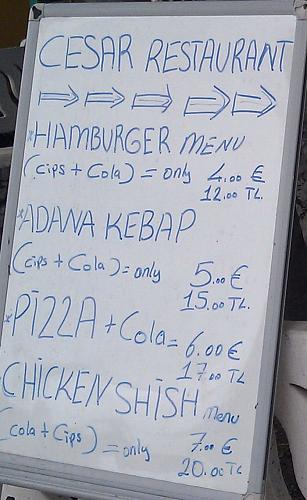 CESAR RESTAURANT
*HAMBURGER MENU
(cips + Cola) = only 4.00 €
12.00 TL.
*ADANA KEBAP
(cips + Cola) = only 5.00 €
15.00 TL.
*PİZZA + Cola = 6.00 €
17.00 TL
CHİCKEN SHİSH menu
(cola + Cips) = only 7.00 €
20.00 TL